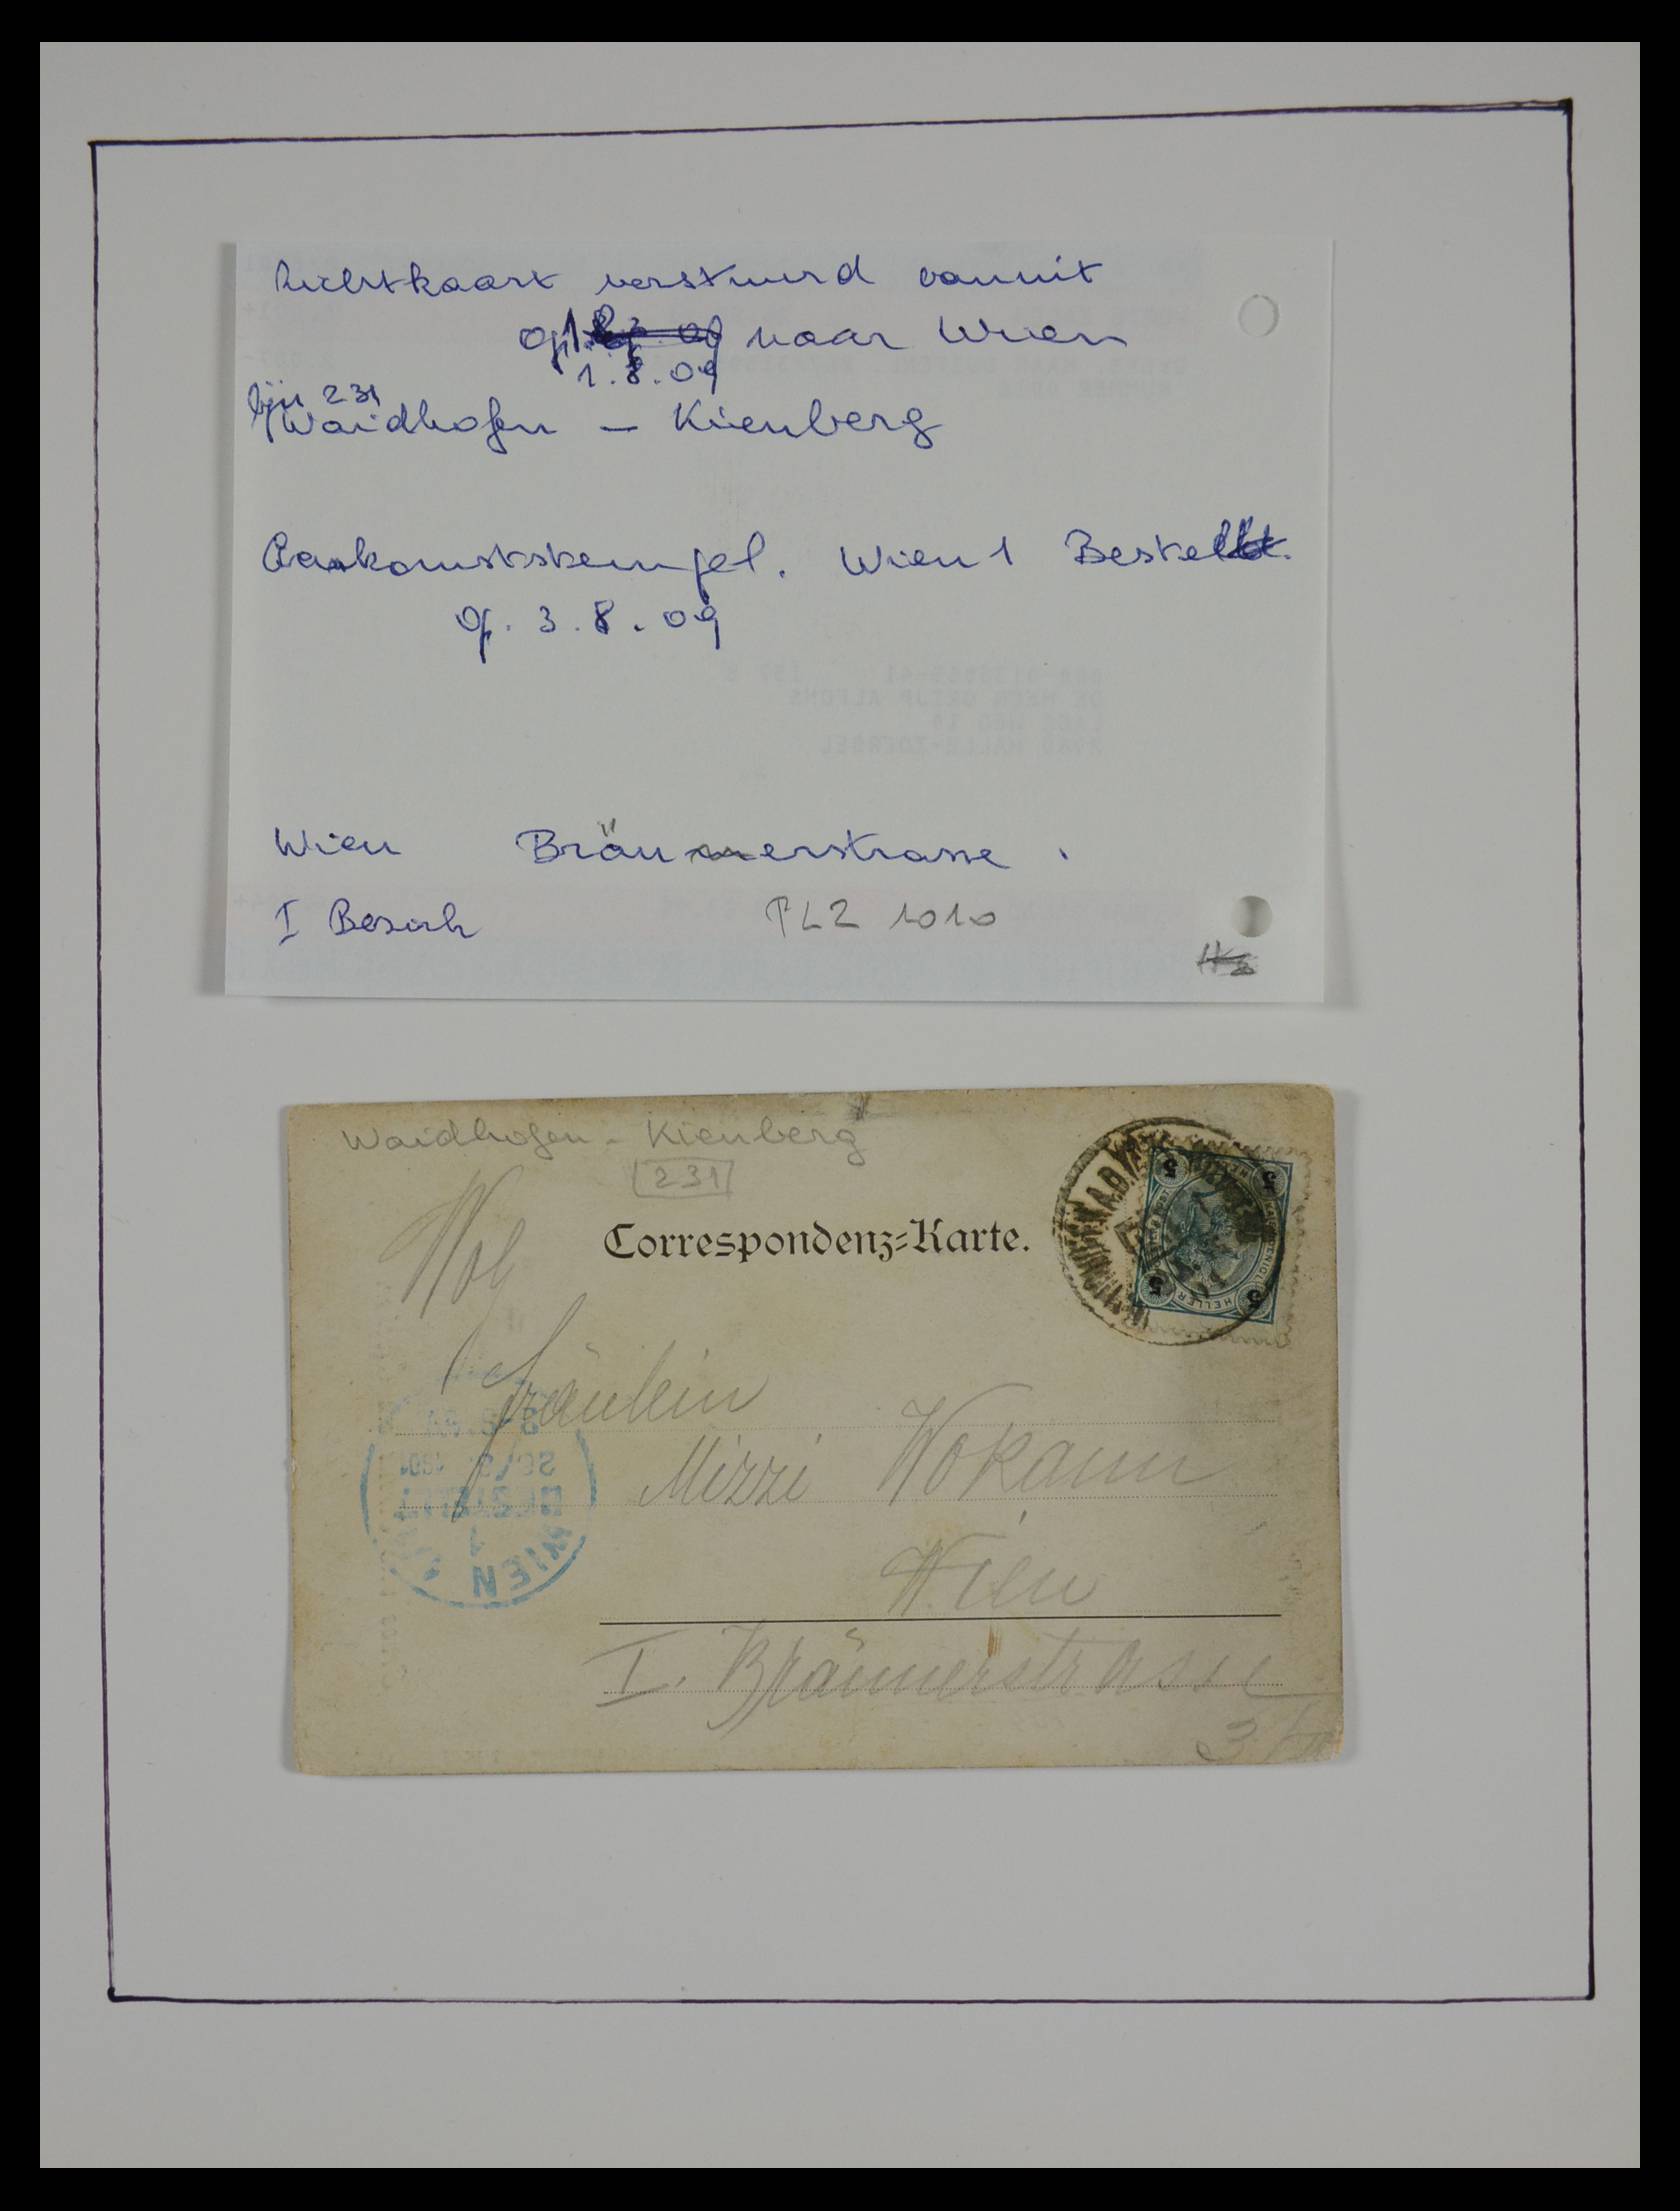 verstuurd vanuit
naar Wien
1.8.09
lijn 231
Waidhofen – Kienberg
Aankomststempel. Wien 1 Bestellt.
op. 3.8.09
Wien Bräunerstrasse.
I Bezirk
PLZ 1010
Waidhofen - Kienberg
231
Correspondenz-Karte.
Fräulein
Mizzi Wokaun
Wien
I. Bräunerstrasse
3
WIEN
1
BESTELLT
5 5 5 5
HELLER